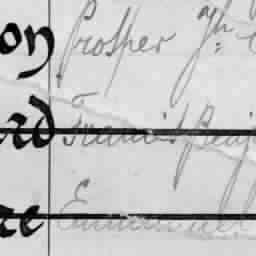 on Prosper Jh.
rd Francis Benj
re Emmanuel